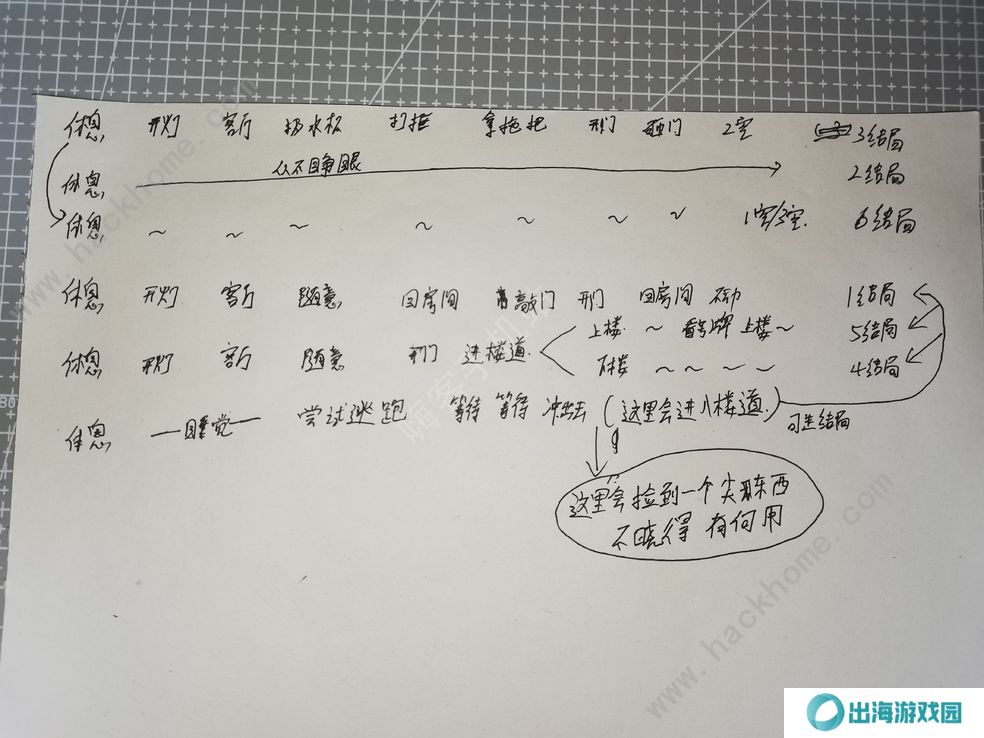 休息 开灯 客厅 打柜 拿拖把 开门 2室 3结局
休息 从不睁眼 2结局
休息 ~ ~ ~ ~ ~ ~ ~ 6结局
休息 开灯 客厅 随意 回房间 敲门 开门 回房间 1结局
上楼 ~ 上楼~ 5结局
休息 开灯 客厅 随意 开门 进楼道
下楼 ~ ~ ~ ~ 4结局
休息 —睡觉— 尝试逃跑 等待 等待 冲出去 (这里会进入楼道) 可选结局
这里会捡到一个尖东西
不晓得 有何用
www.hackhome.com
嗨客手机站
出海游戏园